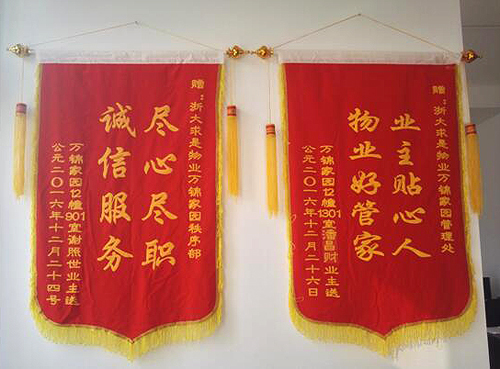 赠：浙大求是物业万锦家园秩序部
尽心尽职
诚信服务
万锦家园12幢901室谢照世业主送
公元二〇一六年十二月二十四号
赠：浙大求是物业万锦家园管理处
业主贴心人
物业好管家
万锦家园12幢1301室潘昌财业主送
公元二〇一六年十二月二十六日